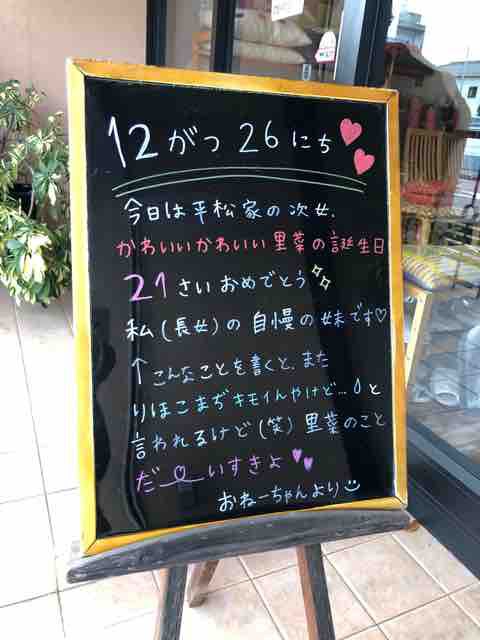 12がつ 26にち
今日は平松家の次女、
かわいいかわいい里菜の誕生日
21さいおめでとう
私(長女)の自慢の妹です♡
↑こんなことを書くと、また
りほこまぢキモイんやけど...と
言われるけど(笑)里菜のこと
だ〜いすきよ
おねーちゃんより